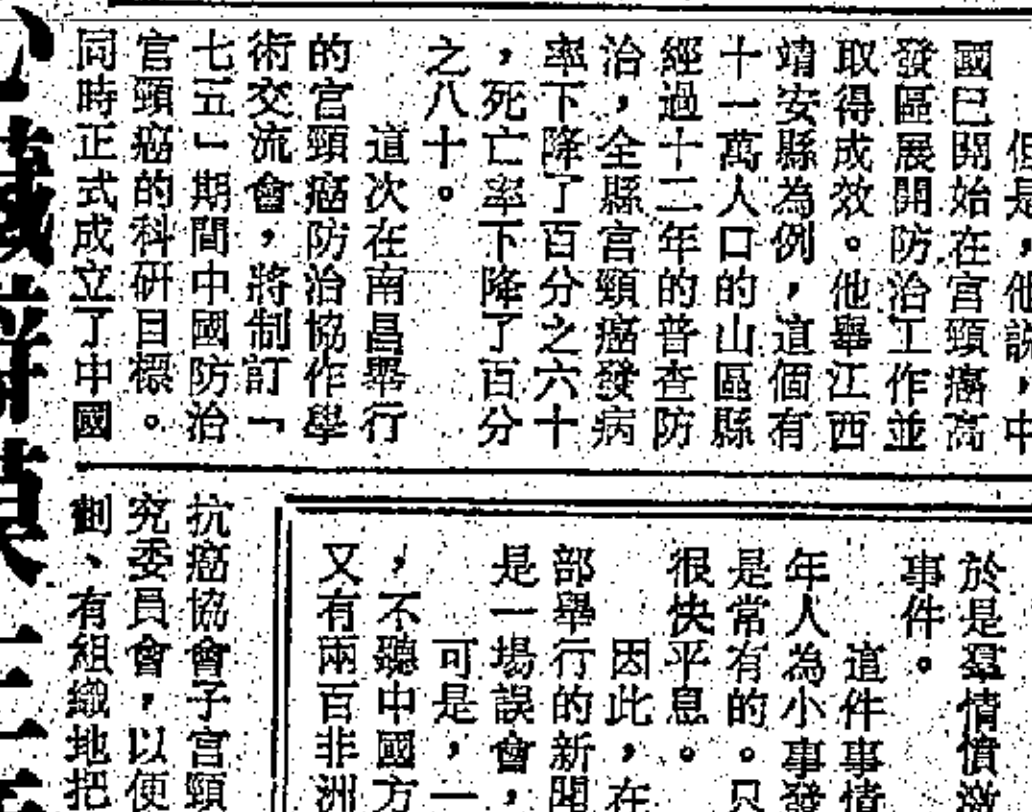 但是，他説，中
國已開始在宮頸癌高
發區展開防治工作並
取得成效。他舉江西
靖安縣為例，這個有
十一萬人口的山區縣
經過十二年的普查防
治，全縣宮頸癌發病
率下降了百分之六十
，死亡率下降了百分
之八十。
這次在南昌舉行
的宮頸癌防治協作學
術交流會，將制訂「
七五」期間中國防治
宮頸癌的科研目標。
同時正式成立了中國
抗癌協會子宮頸
究委員會，以便
劃、有組織地把
於是羣情憤激
事件。
這件事情
年人為小事發
是常有的。只
很快平息。
因此，在
部舉行的新聞
是一場誤會，
可是，一
，不聽中國方
又有兩百非洲